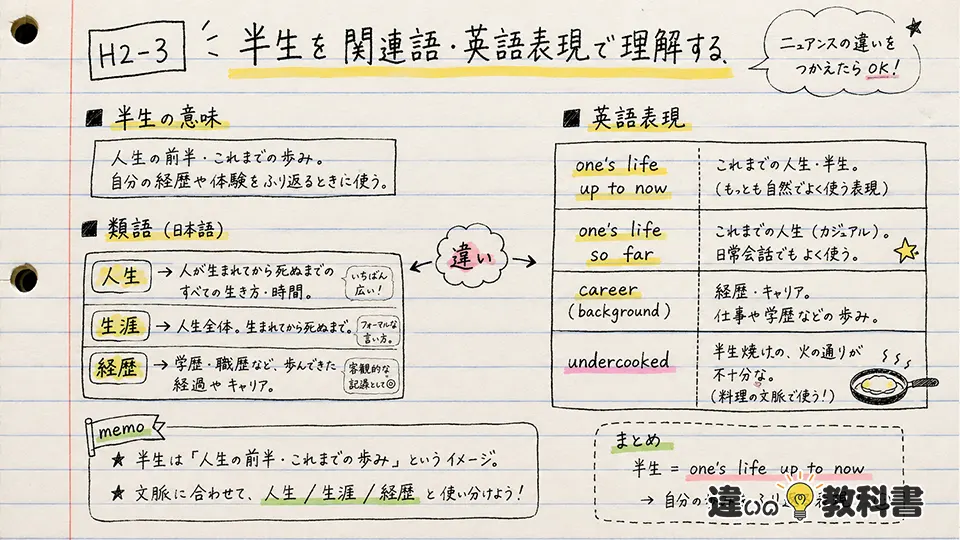 H2-3
半生を関連語・英語表現で理解する。
ニュアンスの違いを
つかえたらOK!
■ 半生の意味
人生の前半・これまでの歩み。
自分の経歴や体験をふり返るときに使う。
■ 類語(日本語)
人生 → 人が生まれてから死ぬまでの
すべての生き方・時間。
いちばん
広い!
生涯 → 人生全体。生まれてから死ぬまで。
フォーマルな
言い方。
経歴 → 学歴・職歴など、歩んできた
経過やキャリア。
客観的な
記録として◎
違い
■ 英語表現
one's life
up to now
これまでの人生・半生。
(もっとも自然でよく使う表現)
one's life
so far
これまでの人生(カジュアル)。
日常会話でもよく使う。
career
(background)
経歴・キャリア。
仕事や学歴などの歩み。
undercooked
半生焼けの、火の通りが
不十分な。
(料理の文脈で使う!)
memo
★ 半生は「人生の前半・これまでの歩み」というイメージ。
★ 文脈に合わせて、人生/生涯/経歴と使い分けよう!
まとめ
半生 = one's life up to now
→ 自分の
違いの教科書